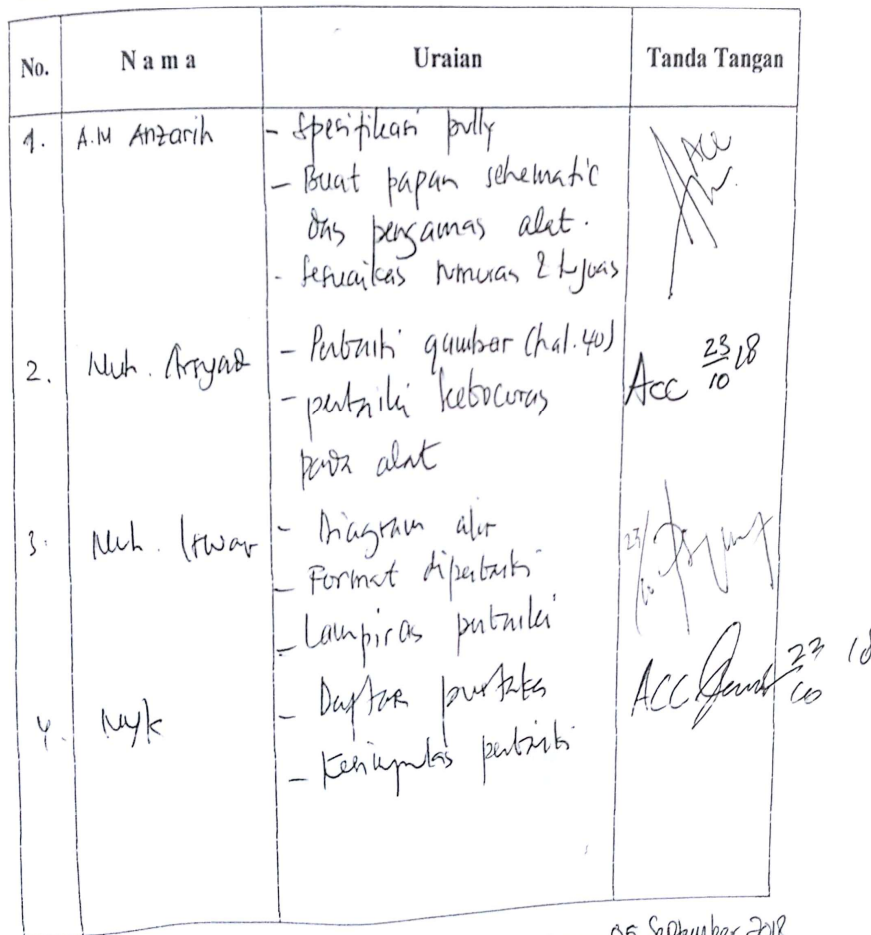 No. Nama Uraian Tanda Tangan
1. A.M Anzarih - Spesifikasi pully Acc
- Buat papan schematic
dan pengaman alat.
- Sesuaikan rumusan & tujuan
2. Muh. Arsyad - Perbaiki gambar (hal. 40) Acc 23/10 18
- perbaiki kebocoran
pada alat
3. Muh. Iswar - Diagram alir 23/10
- Format diperbaiki
- Lampiran perbaiki
4. - Daftar pustaka ACC 23/10 18
- Kesimpulan perbaiki
05 September 2018